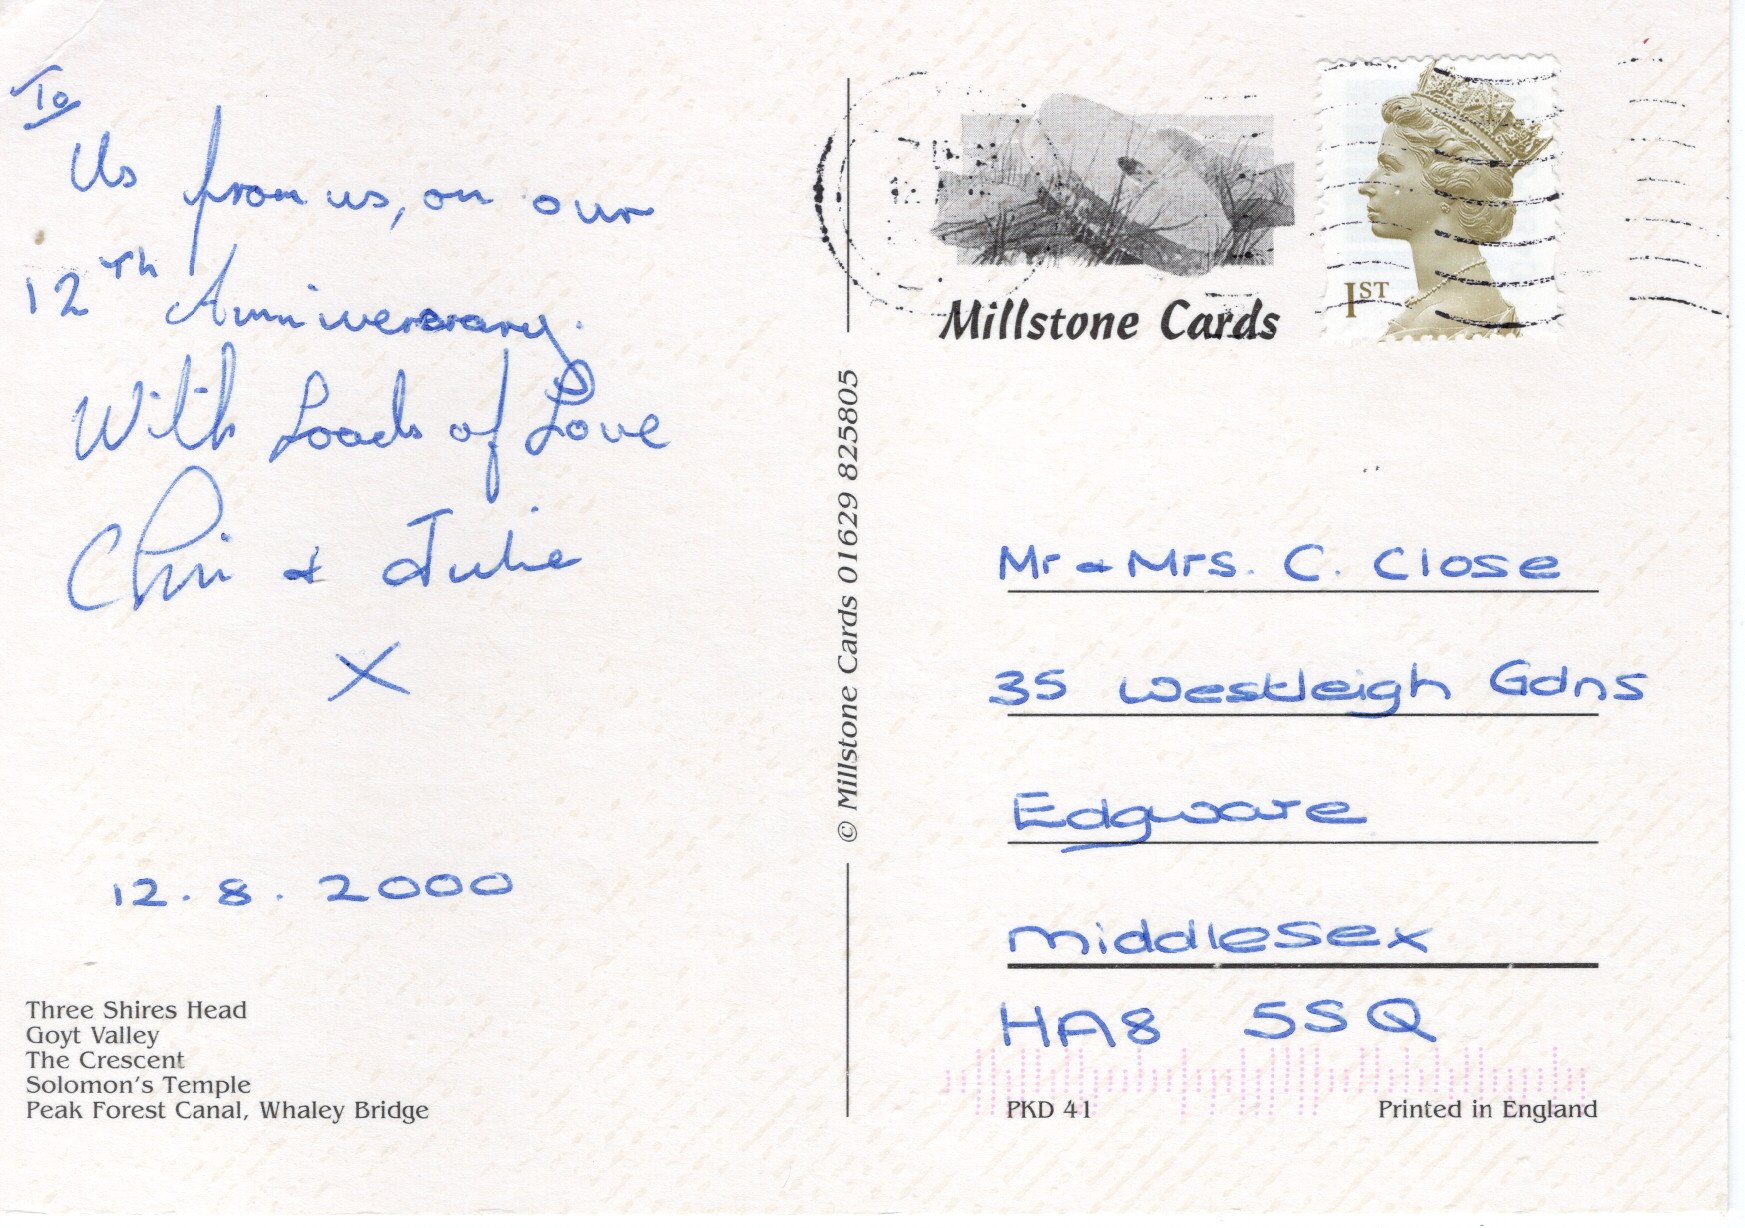 To
Us from us, on our
12Th Anniversary.
With Loads of Love
Chris & Julie
X
12.8.2000
Three Shires Head
Goyt Valley
The Crescent
Solomon's Temple
Peak Forest Canal, Whaley Bridge
© Millstone Cards 01629 825805
Millstone Cards
1ST
Mr & Mrs. C. Close
35 Westleigh Gdns
Edgware
Middlesex
HA8 5SQ
PKD 41
Printed in England